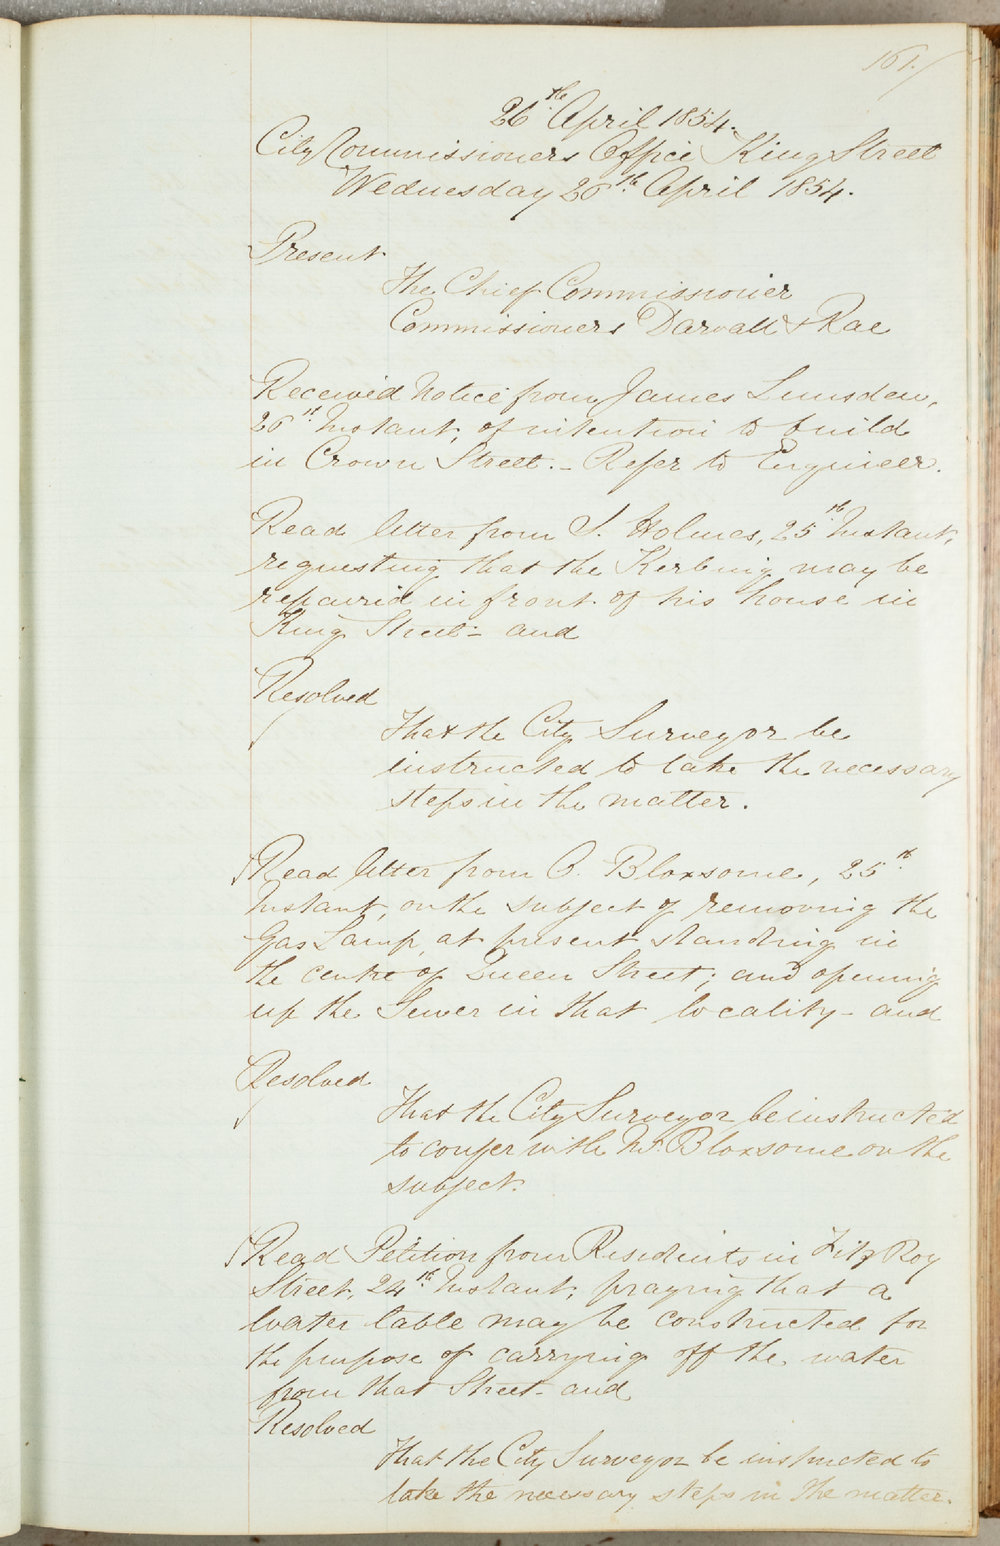 161.
26th April 1854.
City Commissioners Office King Street
Wednesday 26th April 1854.
Present
The Chief Commissioner
Commissioners Darvall & Rae
Received Notice from James Lumsden,
26th Instant, of intention to build
in Crown Street. - Refer to Engineer.
Read letter from S. Holmes, 25th Instant,
requesting that the Kerbing may be
repaired in front of his house in
King Street - and
Resolved
That the City Surveyor be
instructed to take the necessary
steps in the matter.
Read letter from O. Bloxsome, 25th
Instant, on the subject of removing the
Gas Lamp at present standing in
the centre of Queen Street; and opening
up the Sewer in that locality - and
Resolved
That the City Surveyor be instructed
to confer with Mr. Bloxsome on the
subject.
Read Petition from Residents in Fitz Roy
Street, 24th Instant, praying that a
water table may be constructed for
the purpose of carrying off the water
from that Street - and
Resolved
That the City Surveyor be instructed to
take the necessary steps in the matter.